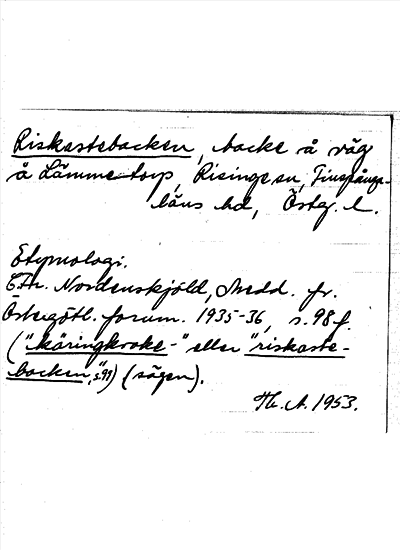 Riskastebacken, backe å väg
å Lämmetorp, Risinge sn, Finspånga-
läns hd, Österg. l.
Etymologi.
C.Fr. Nordenskjöld, Medd. fr.
Östergötl. fornm. 1935-36, s. 98 f.
("käringkroke-" eller "riskaste-
backen", s. 99) (sägen).
Th. A. 1953.